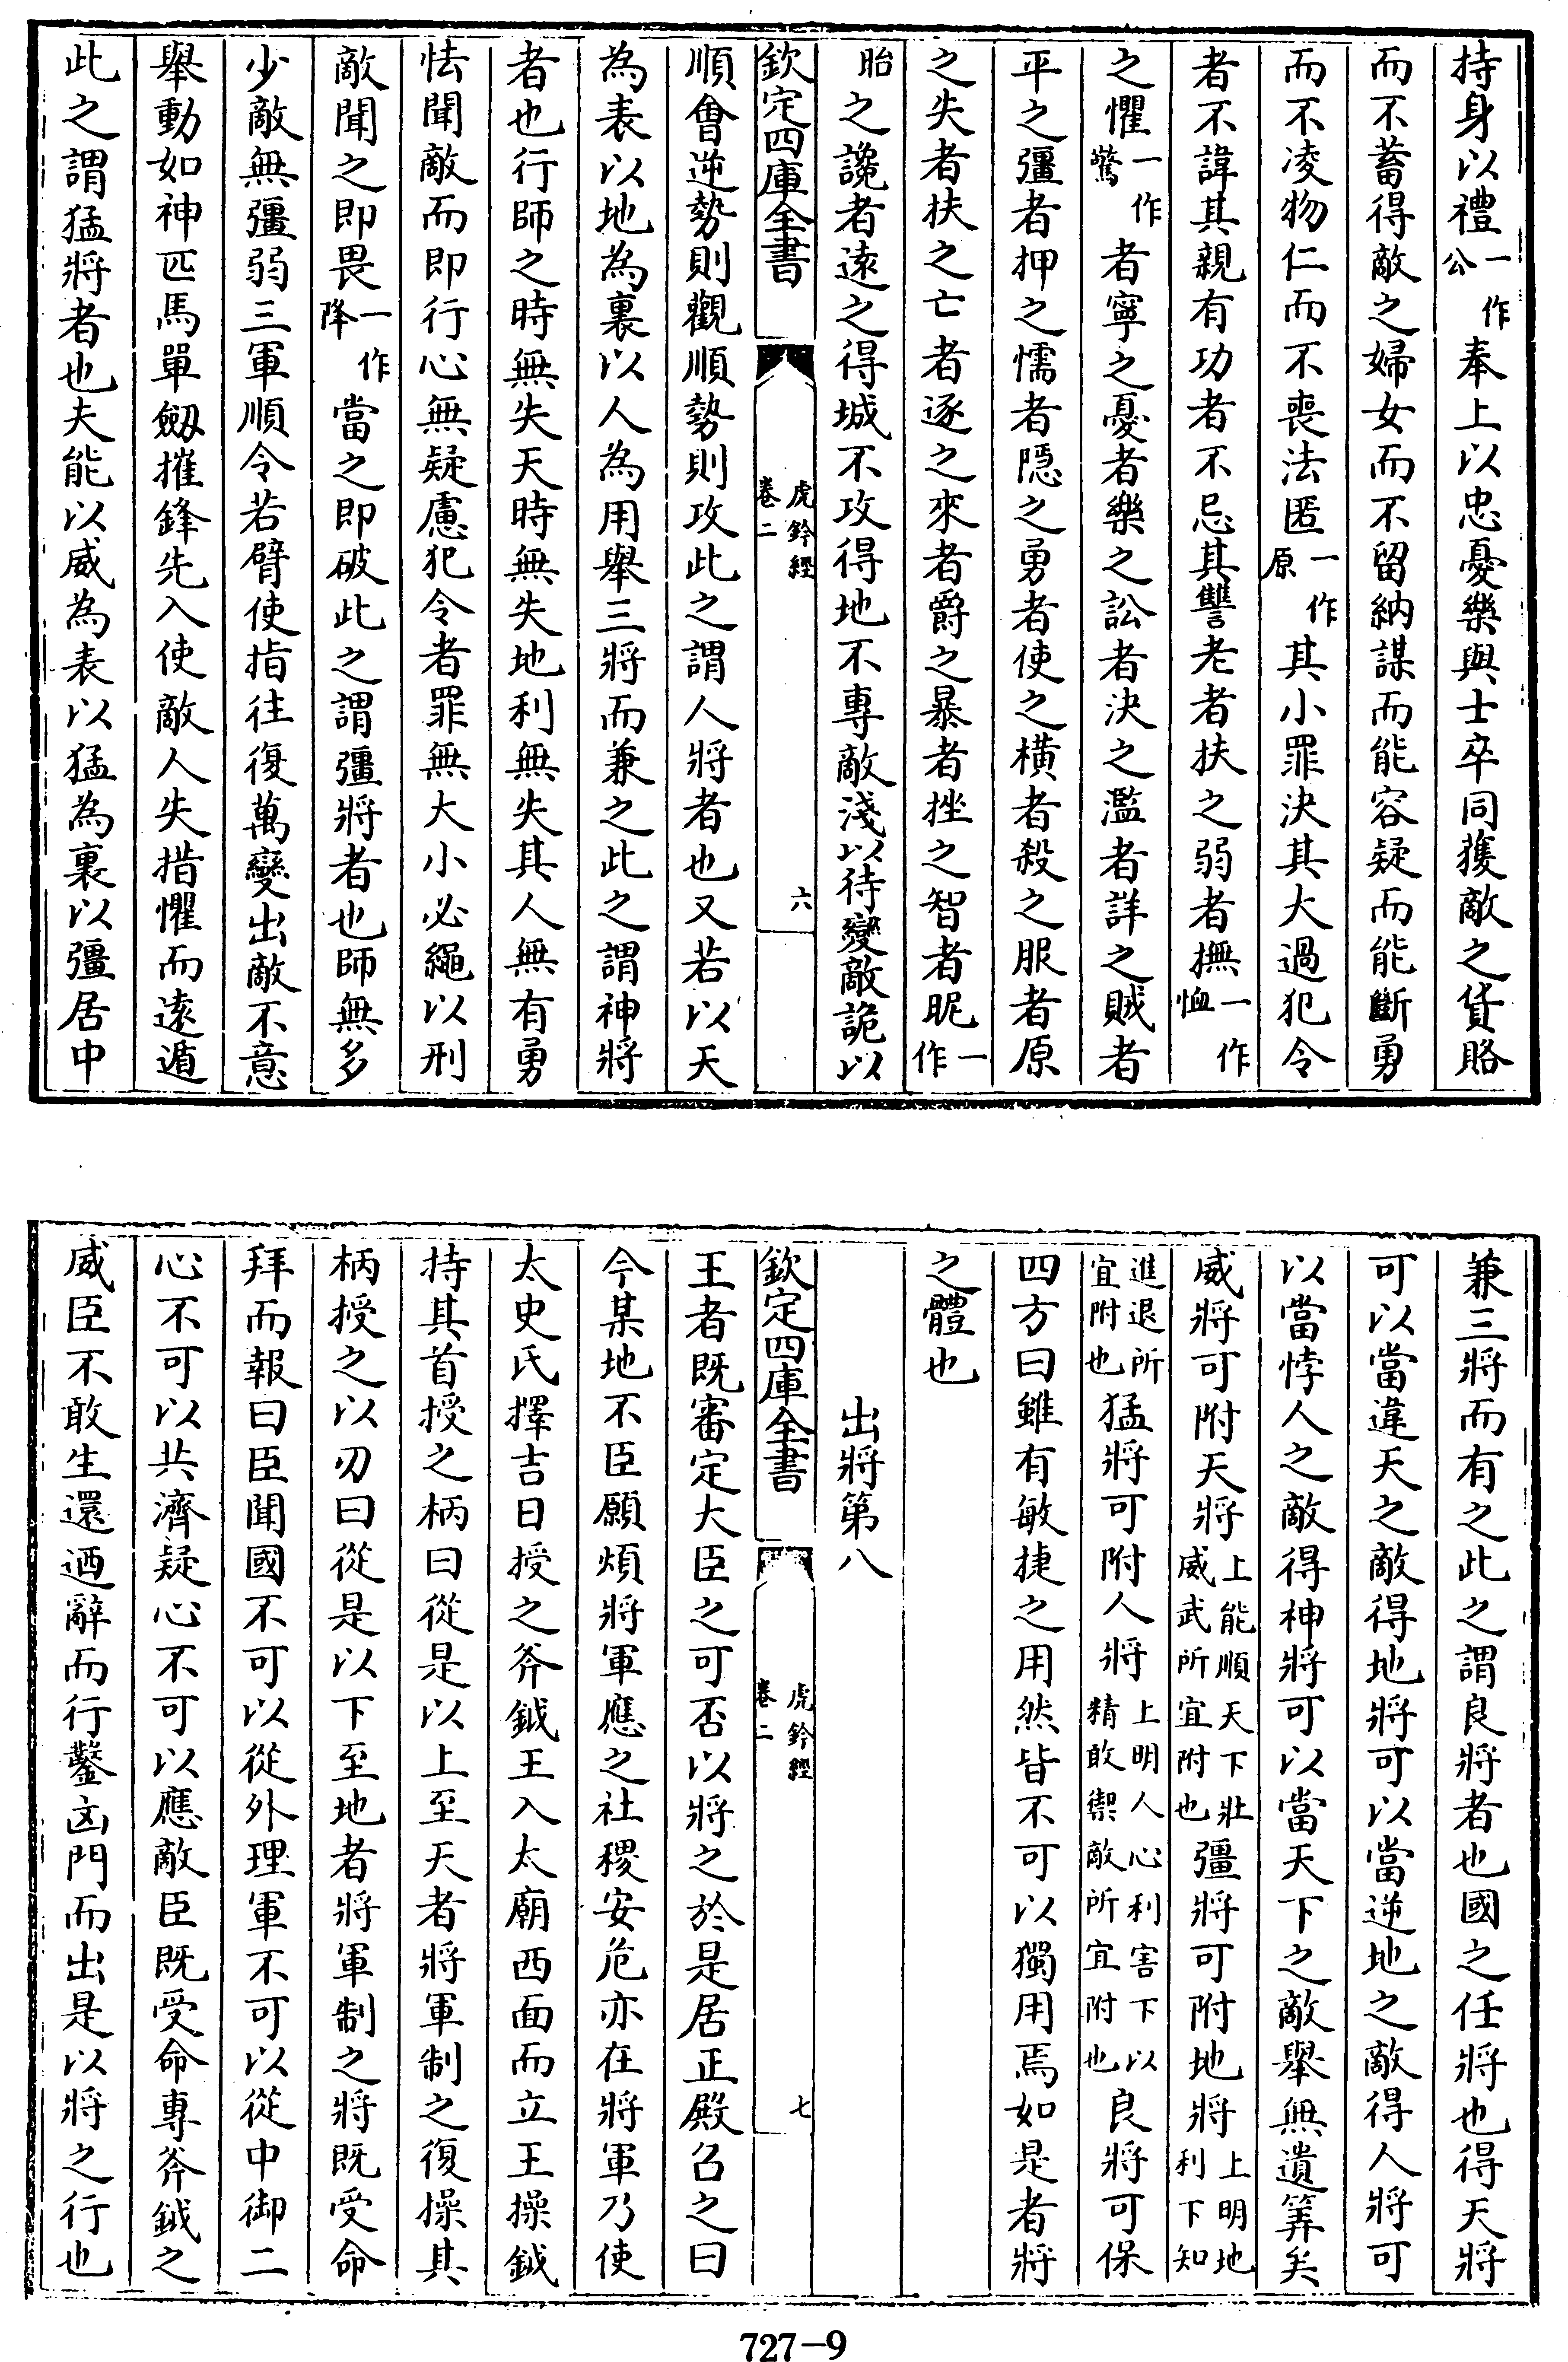 持身以禮一作公奉上以忠憂樂與士卒同獲敵之貨賂
而不蓄得敵之婦女而不留納謀而能容疑而能斷勇
而不凌物仁而不喪法匿一作原其小罪決其大過犯令
者不諱其親有功者不忌其讐老者扶之弱者撫一作恤
之懼一作驚者寧之憂者樂之訟者決之濫者詳之賊者
平之彊者押之懦者隱之勇者使之橫者殺之服者原
之失者扶之亡者逐之來者爵之暴者挫之智者昵一作
眙之讒者遠之得城不攻得地不專敵淺以待變敵詭以
欽定四庫全書
虎鈐經
卷二
六
順會逆勢則觀順勢則攻此之謂人將者也又若以天
為表以地為裏以人為用舉三將而兼之此之謂神將
者也行師之時無失天時無失地利無失其人無有勇
怯聞敵而即行心無疑慮犯令者罪無大小必繩以刑
敵聞之即畏一作降當之即破此之謂彊將者也師無多
少敵無彊弱三軍順令若臂使指往復萬變出敵不意
舉動如神匹馬單劔摧鋒先入使敵人失措懼而遠遁
此之謂猛將者也夫能以威為表以猛為裏以彊居中
兼三將而有之此之謂良將者也國之任將也得天將
可以當違天之敵得地將可以當逆地之敵得人將可
以當悖人之敵得神將可以當天下之敵舉無遺筭矣
威將可附天將上能順天下壯威武所宜附也彊將可附地將上明地利下知
進退所宜附也猛將可附人將上明人心利害下以精敢禦敵所宜附也良將可保
四方曰雖有敏捷之用然皆不可以獨用焉如是者將
之體也
出將第八
欽定四庫全書
虎鈐經
卷二
七
王者既審定大臣之可否以將之於是居正殿召之曰
今某地不臣願煩將軍應之社稷安危亦在將軍乃使
太史氏擇吉日授之斧鉞王入太廟西面而立王操鉞
持其首授之柄曰從是以上至天者將軍制之復操其
柄授之以刃曰從是以下至地者將軍制之將既受命
拜而報曰臣聞國不可以從外理軍不可以從中御二
心不可以共濟疑心不可以應敵臣既受命專斧鉞之
威臣不敢生還迺辭而行鑿凶門而出是以將之行也
727-9